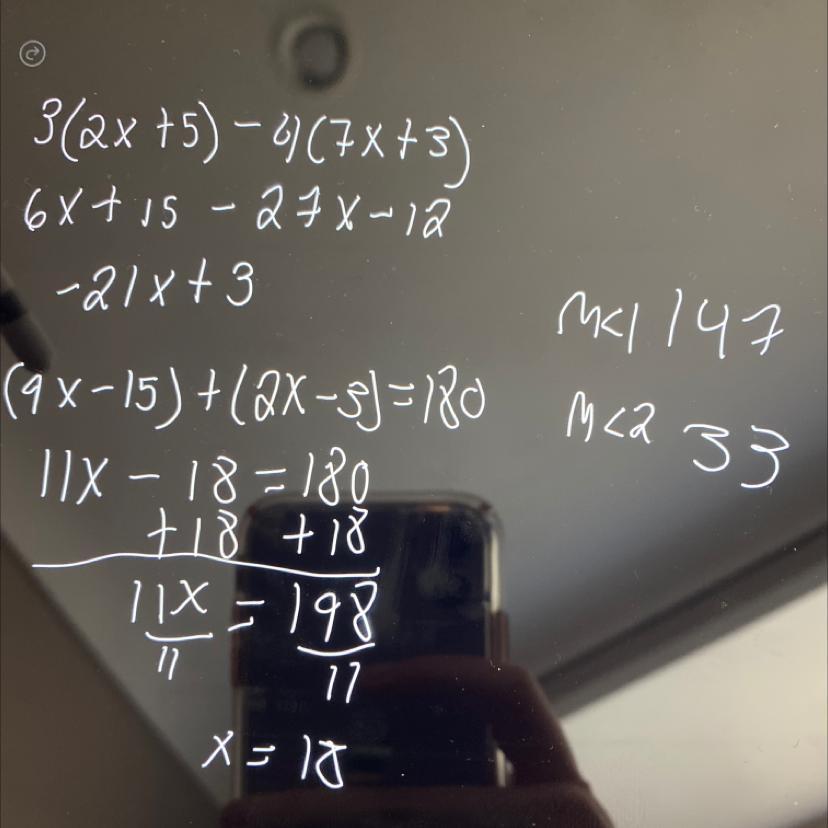 3(2x+5)-4(7x+3)
6x+15-27x-12
-21x+3
(9x-15)+(2x-3)=180
11x-18=180
+18 +18
11x=198
11 11
x=18
m<1 147
m<2 33